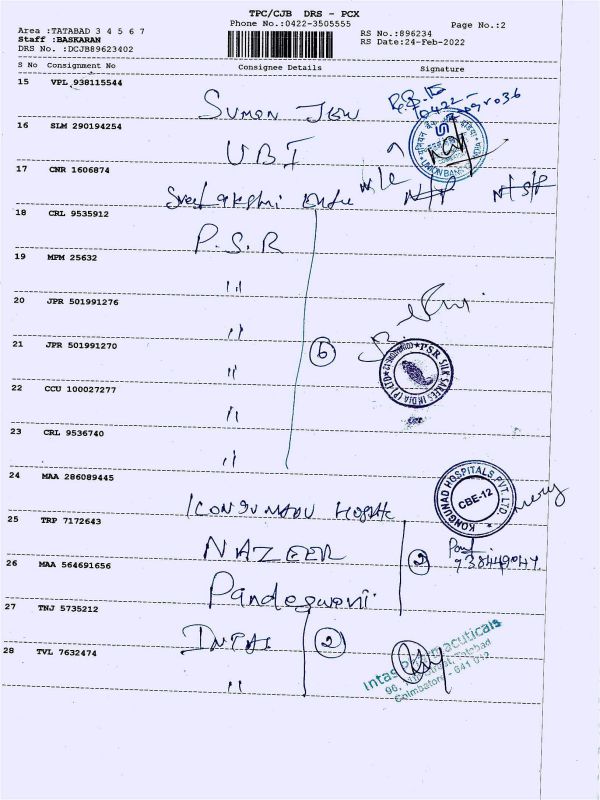 TPC/CJB DRS - PCX
Phone No.:0422-3505555
Page No.:2
Area :TATABAD 3 4 5 6 7
Staff :BASKARAN
DRS No. :DCJB89623402
RS No.:896234
RS Date:24-Feb-2022
S No Consignment No Consignee Details Signature
15 VPL 938115544
Suman Jew
16 SLM 290194254
UBI
UNION BANK
17 CNR 1606874
18 CRL 9535912
P.S.R
19 MPM 25632
"
20 JPR 501991276
"
21 JPR 501991270
"
6
PSR SILK SAREES INDIA (P) LTD
22 CCU 100027277
"
23 CRL 9536740
"
24 MAA 286089445
KONGUNAD HOSPITALS PVT. LTD.
CBE-12
25 TRP 7172643
NAZEER
2
26 MAA 564691656
27 TNJ 5735212
INTAS
2
28 TVL 7632474
"
Intas Pharmaceuticals
Coimbatore - 641 012